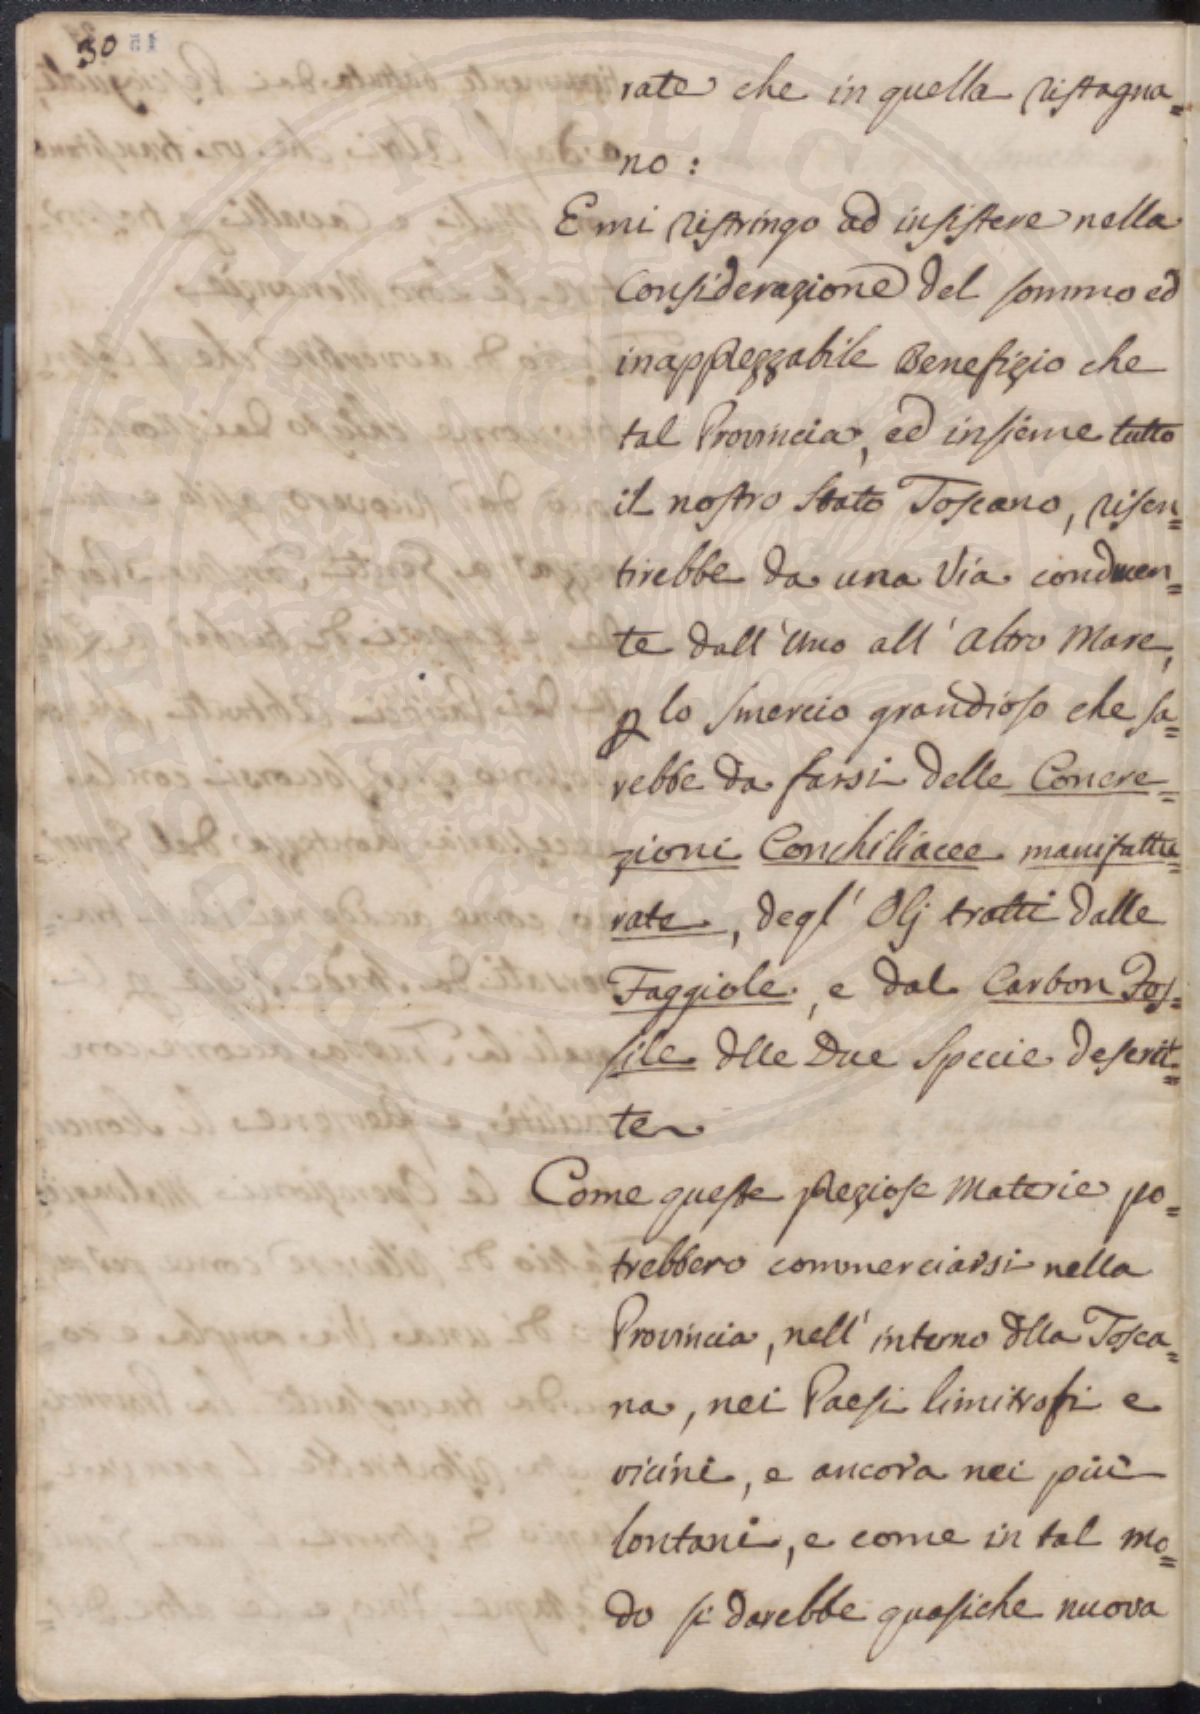 30
rate che in quella ristagna=
no:
E mi ristringo ad insistere nella
considerazione del sommo ed
inapprezzabile Benefizio che
tal Provincia, ed insieme tutto
il nostro Stato Toscano, risen=
tirebbe da una Via conducen=
te dall'uno all'altro Mare,
p lo smercio grandioso che sa=
rebbe da farsi delle Concre=
zioni Conchiliacee manifattu=
rate, degl'Olj tratti dalle
Faggiole, e dal Carbon Fos=
sile dlle Due Specie descrit=
te
Come queste preziose Materie po=
trebbero commerciarsi nella
Provincia, nell'interno dlla Tosca=
na, nei Paesi limitrofi e
vicini, e ancora nei più
lontani, e come in tal mo=
do si darebbe quasiche nuova